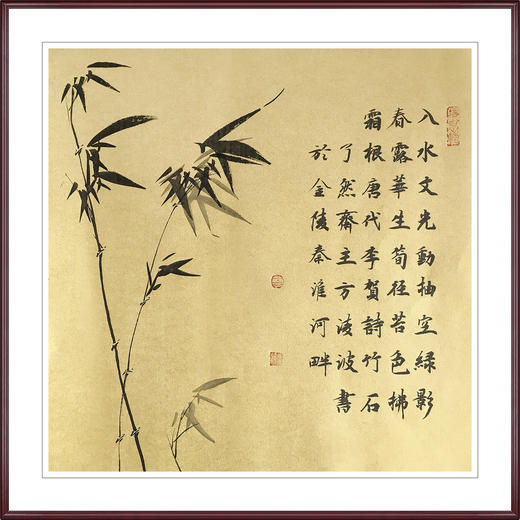 入水文光動抽空綠影
春露華生筍徑苔色拂
霜根唐代李賀詩竹石
了然齋主方淩波書
於金陵秦淮河畔